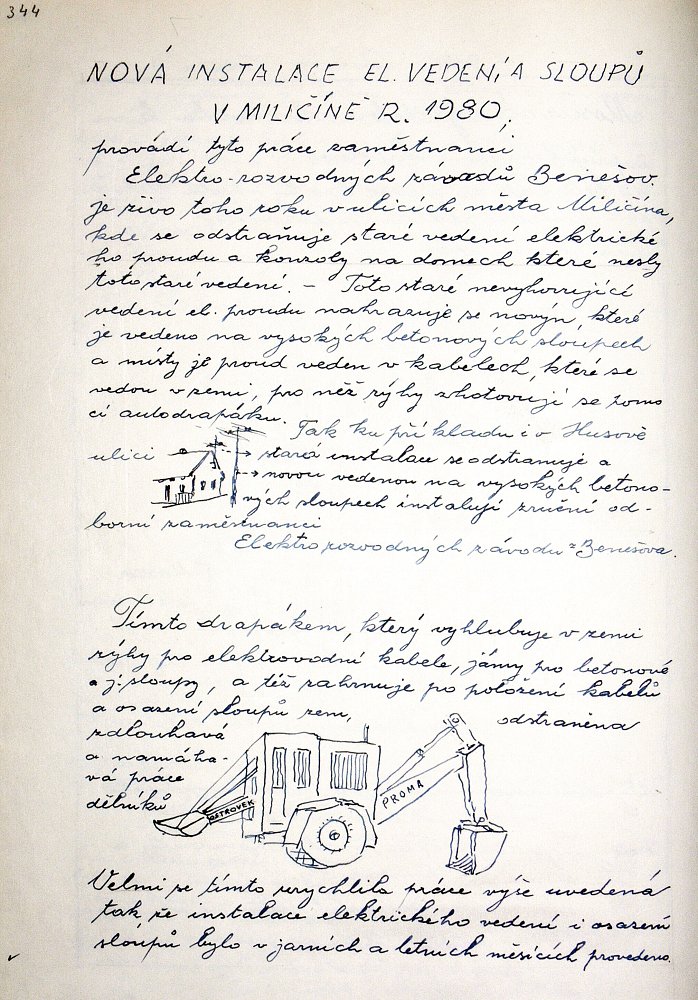 344
NOVÁ INSTALACE EL. VEDENÍ A SLOUPŮ
V MILIČÍNĚ R. 1980,
provádí tyto práce zaměstnanci
Elektro-rozvodných závodů Benešov.
je živo toho roku v ulicích města Miličína,
kde se odstraňuje staré vedení elektrické
ho proudu a konzoly na domech které nesly
toto staré vedení. – Toto staré nevyhovující
vedení el. proudu nahrazuje se novým, které
je vedeno na vysokých betonových sloupech
a místy je proud veden v kabelech, které se
vedou v zemi, pro něž rýhy zhotovují se pomo
cí autodrapáku. Tak ku příkladu i v Husově
ulici stará instalace se odstranuje a
novou vedenou na vysokých betono-
vých sloupech instalují zruční od-
borní zaměstnanci
Elektro rozvodných závodu z Benešova.
Tímto drapákem, který vyhlubuje v zemi
rýhy pro elektrovodní kabele, jámy pro betonové
a j. sloupy, a též zahrnuje po položení kabelů
a osazení sloupů zem, odstraněna
zdlouhavá
a namáha-
vá práce
dělníků
OSTROVEK
PROMA
Velmi se tímto urychlila práce výše uvedená
tak, že instalace elektrického vedení i osazení
sloupů bylo v jarních a letních měsících provedeno.